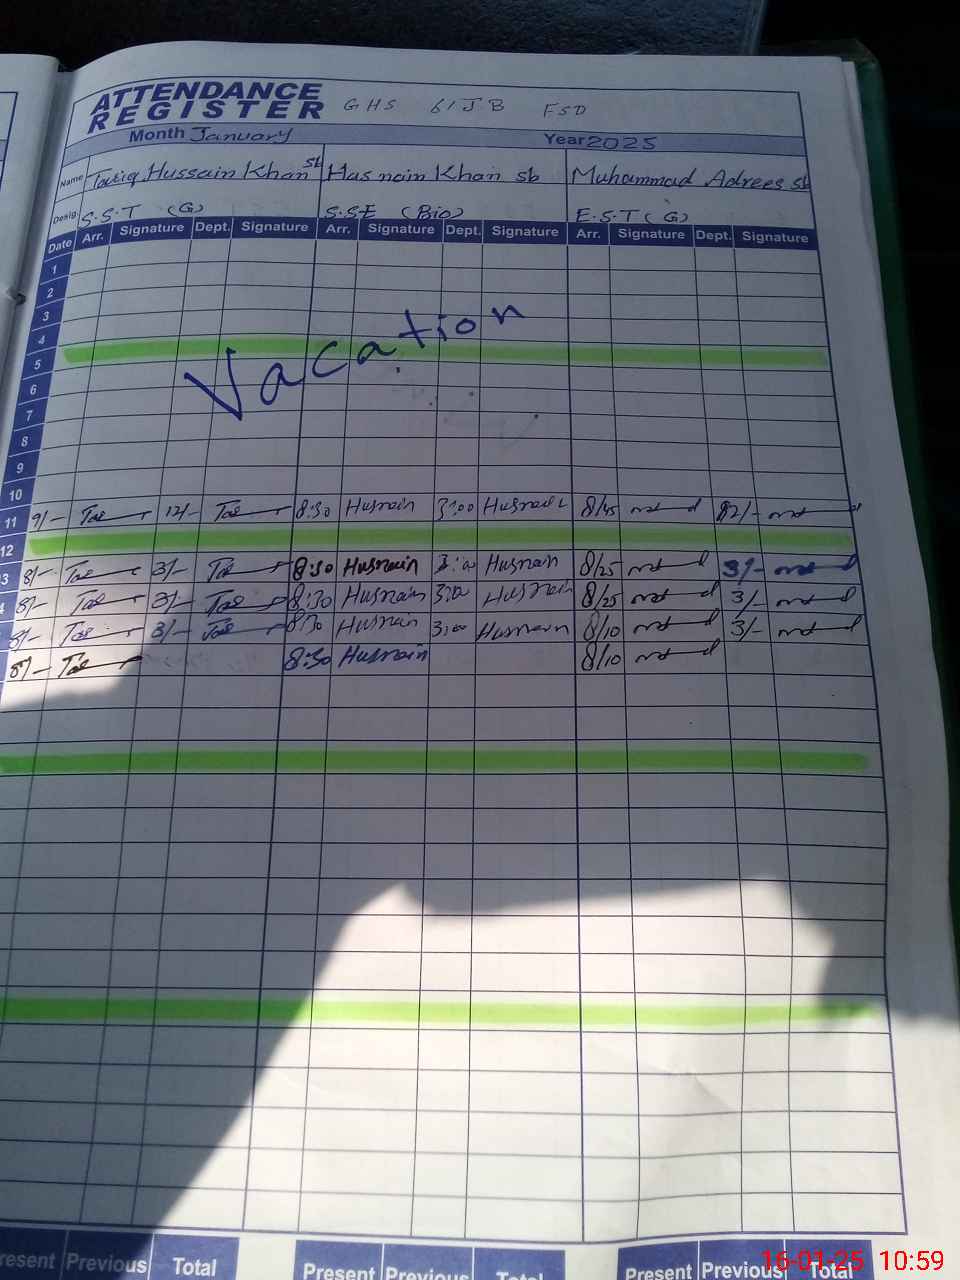 ATTENDANCE REGISTER GHS 61 JB FSD
Month January Year 2025
Name Tariq Hussain Khan sb Hasnain Khan sb Muhammad Adrees sb
Desig. S.S.T (G) S.S.E (Bio) E.S.T (G)
Date Arr. Signature Dept. Signature Arr. Signature Dept. Signature Arr. Signature Dept. Signature
1
2
3
4
Vacation
5
6
7
8
9
10
11 9/- 12/- 8:30 Husnain 3:00 Husnain 8/45
12
3 8/- 3/- 8:30 Husnain 3:00 Husnain 8/25 3/-
4 8/- 3/- 8:30 Husnain 3:00 Husnain 8/25 3/-
8/- 3/- 8:30 Husnain 3:00 Husnain 8/10 3/-
8/- 8:30 Husnain 8/10
resent Previous Total Present Previous Total Present Previous Total
16-01-25 10:59